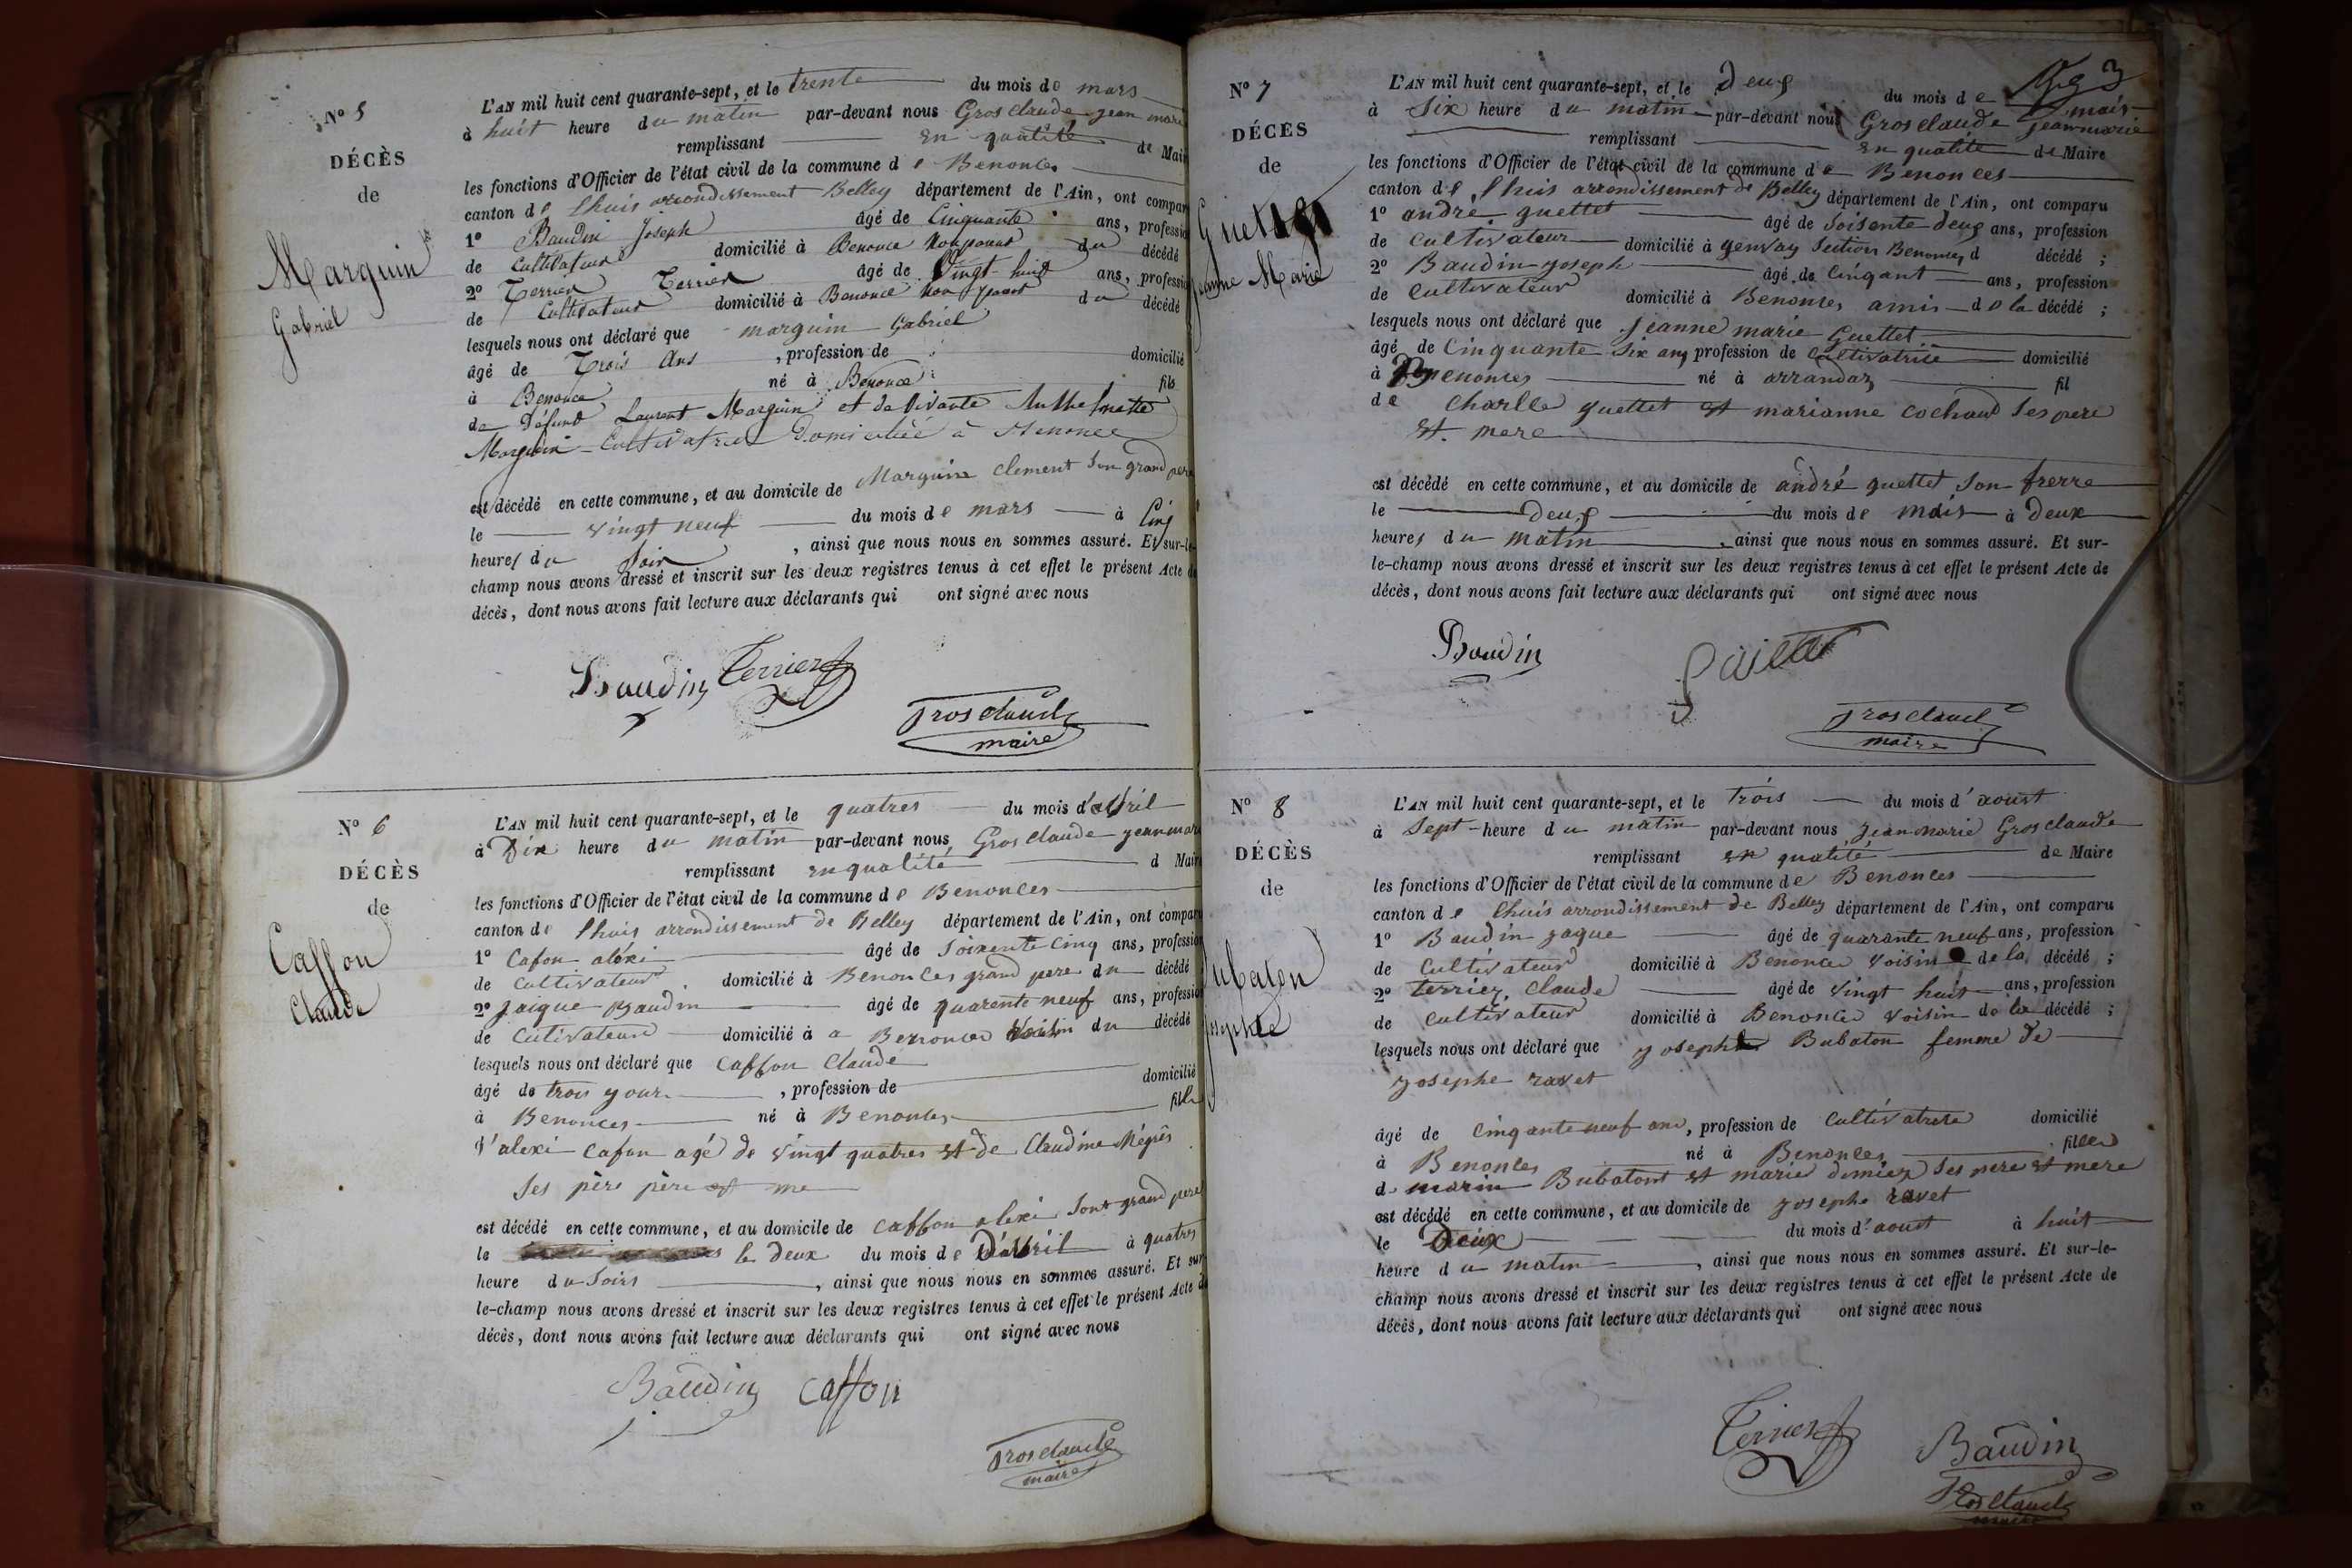 N° 5
DÉCÈS
de
Marguin
Gabriel
L'AN mil huit cent quarante-sept, et le trente du mois de mars
à huit heure du matin par-devant nous Grosclaude jean marie
remplissant en qualité de Mair
les fonctions d'Officier de l'état civil de la commune de Benonces
canton de lhuis arrondissement Belley département de l'Ain, ont compar
1° Baudin Joseph âgé de Cinquante ans, professio
de Cultivateur domicilié à Benonce non parent du décédé
2° Terrier Terrier âgé de Vingt huit ans, professio
de Cultivateur domicilié à Benonce non parent du décédé
lesquels nous ont déclaré que marguin Gabriel
âgé de Trois Ans , profession de domicilié
à Benonce né à Benonce fils
de Défunt Laurent Marguin et de vivante
Marguin Cultivatrice Domiciliée à Benonce
est décédé en cette commune, et au domicile de Marguin clement son grand pere
le vingt neuf du mois de mars à Cinq
heures du soir , ainsi que nous nous en sommes assuré. Et sur-le-
champ nous avons dressé et inscrit sur les deux registres tenus à cet effet le présent Acte de
décès, dont nous avons fait lecture aux déclarants qui ont signé avec nous
Baudin Terrier
Grosclaude
maire
N° 6
DÉCÈS
de
Caffon
Claude
L'AN mil huit cent quarante-sept, et le quatres du mois d'avril
à Dix heure du matin par-devant nous Grosclaude jeanmari
remplissant en qualité d Maire
les fonctions d'Officier de l'état civil de la commune de Benonces
canton de lhuis arrondissement de Belley département de l'Ain, ont comparu
1° Cafon aléxi âgé de soixente cinq ans, profession
de cultivateur domicilié à Benonces grand pere du décédé
2° jaique Baudin âgé de quarente neuf ans, profession
de Cultivateur domicilié à a Benonces voisin du décédé
lesquels nous ont déclaré que Caffon Claude
âgé de trois your , profession de domicilié
à Benonces né à Benonces fils
d'alexi Cafon agé de vingt quatres et de Claudine
ses père père et me
est décédé en cette commune, et au domicile de caffon alexi sont grand pere
le le deux du mois de D'avril à quatres
heure du soirs , ainsi que nous nous en sommes assuré. Et sur-
le-champ nous avons dressé et inscrit sur les deux registres tenus à cet effet le présent Acte de
décès, dont nous avons fait lecture aux déclarants qui ont signé avec nous
Baudin Caffon
Grosclaude
maire
3
N° 7
DÉCÈS
de
Guettet
Jeanne Marie
L'AN mil huit cent quarante-sept, et le deux du mois de mais
à Six heure du matin par-devant nous Grosclaude jeanmarie
remplissant en qualité de Maire
les fonctions d'Officier de l'état civil de la commune de Benonces
canton de lhuis arrondissement de Belley département de l'Ain, ont comparu
1° andré guettet âgé de soisente deux ans, profession
de Cultivateur domicilié à genvay section Benonces d décédé ;
2° Baudin joseph âgé de Cinqant ans, profession
de Cultivateur domicilié à Benonces amis de la décédé ;
lesquels nous ont déclaré que jeanne marie Guettet
âgé de Cinquante six ans profession de Cultivatrice domicilié
à Benonces né à arrandaz fil
de Charlle guettet et marianne cochand ses pere
et mere
est décédé en cette commune, et au domicile de andré guettet son frerre
le Deux du mois de mais à Deux
heures du matin , ainsi que nous nous en sommes assuré. Et sur-
le-champ nous avons dressé et inscrit sur les deux registres tenus à cet effet le présent Acte de
décès, dont nous avons fait lecture aux déclarants qui ont signé avec nous
Baudin
Grosclaude
maire
N° 8
DÉCÈS
de
Bubaton
josephte
L'AN mil huit cent quarante-sept, et le trois du mois d'aoust
à Sept heure du matin par-devant nous jeanmarie Grosclaude
remplissant en qualité de Maire
les fonctions d'Officier de l'état civil de la commune de Benonces
canton de lhuis arrondissement de Belley département de l'Ain, ont comparu
1° Baudin jaque âgé de quarante neuf ans, profession
de Cultivateur domicilié à Benonces voisin de la décédé ;
2° terrier Claude âgé de vingt huit ans, profession
de cultivateur domicilié à Benonces voisin de la décédé ;
lesquels nous ont déclaré que josephte Bubaton femme de
josephe ravet
âgé de Cinqante neuf ans, profession de Cultivatrice domicilié
à Benonces né à Benonces filles
d marin Bubatont et marie ses pere et mere
est décédé en cette commune, et au domicile de josephe ravet
le Deux du mois d'aoust à huit
heure du matin , ainsi que nous nous en sommes assuré. Et sur-le-
champ nous avons dressé et inscrit sur les deux registres tenus à cet effet le présent Acte de
décès, dont nous avons fait lecture aux déclarants qui ont signé avec nous
Terrier Baudin
Grosclaude
maire